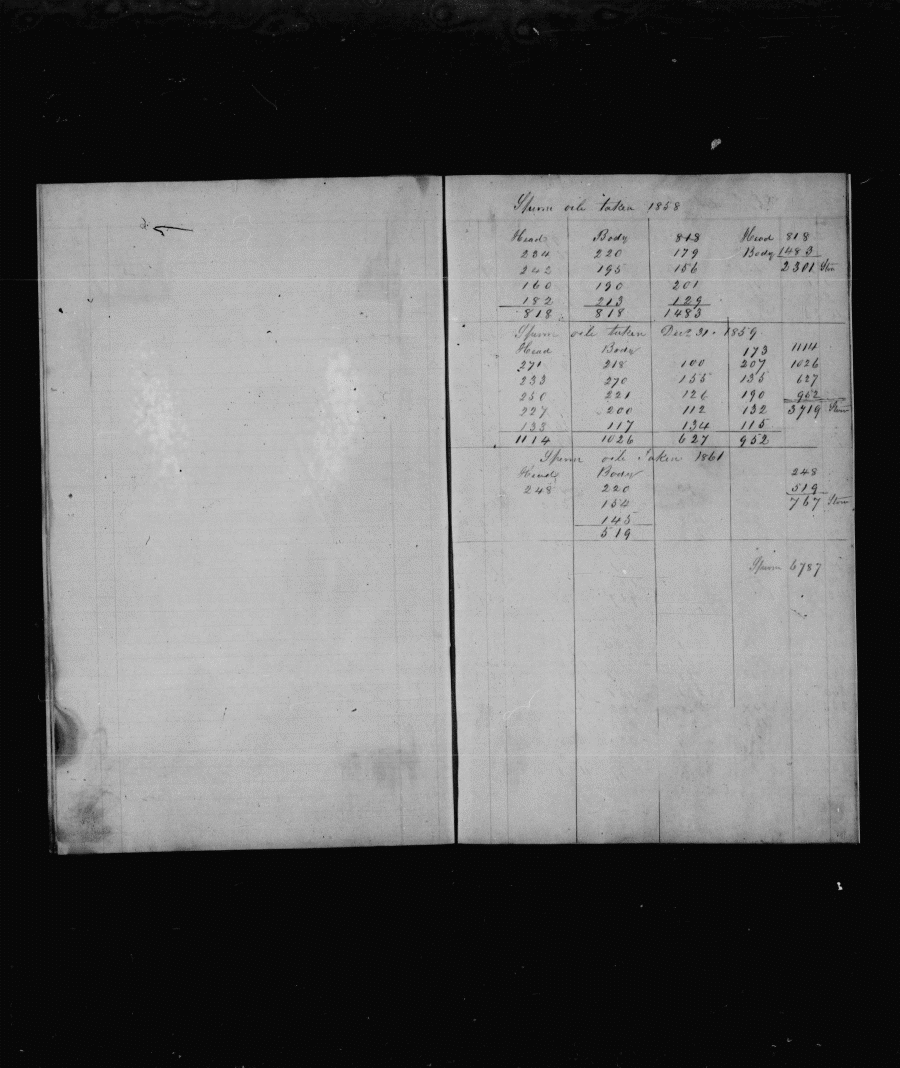 Sperm oil taken 1858
Head Body 818 Head 818
234 220 179 Body 1483
242 195 156 2301
160 190 201
182 213 129
818 818 1483
Sperm oil taken Dec 31 1859
Head Body 173 1114
271 218 100 207 1026
233 270 155 135 627
250 221 126 190 952
227 200 112 132 3719
133 117 134 115
1114 1026 627 952
Sperm oil Taken 1861
Head Body 248
248 220 519
154 767
145
519
Sperm 6787